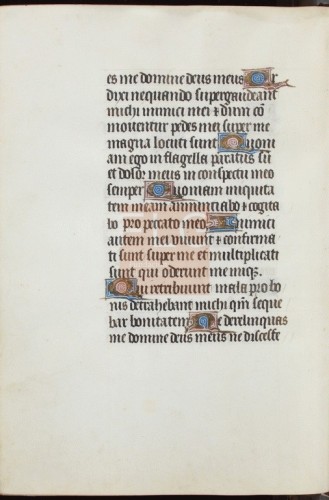 es me domine deus meus Q̄r
dixi nequando supergaudeant
michi inimici mei & dum cō
moventur pedes mei super me
magna locuti sunt Quoni
am ego in flagella paratus sū
et dolor meus in conspectu meo
semper Quoniam iniquita
tem meam annunciabo & cogita
bo pro peccato meo Inimici
autem mei vivunt & confirma
ti sunt super me et multiplicati
sunt qui oderunt me iniq̄.
Qui retribuunt mala pro bo
nis detrahebant michi qm̄ seque
bar bonitatem Ne derelinquas
me domine deus meus ne discesse